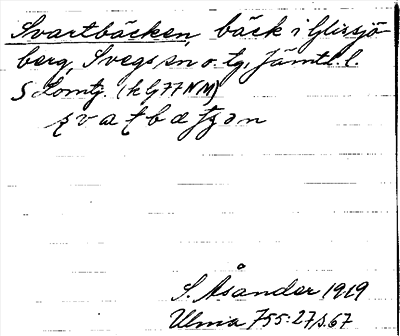 Svartbäcken, bäck i Glissjö-
berg, Svegs sn o. tg, Jämtl. l.
S Lomtj. (k G77NM)
svatbæʃʒən
S. Åsander 1919
Ulma 755:27 s. 67